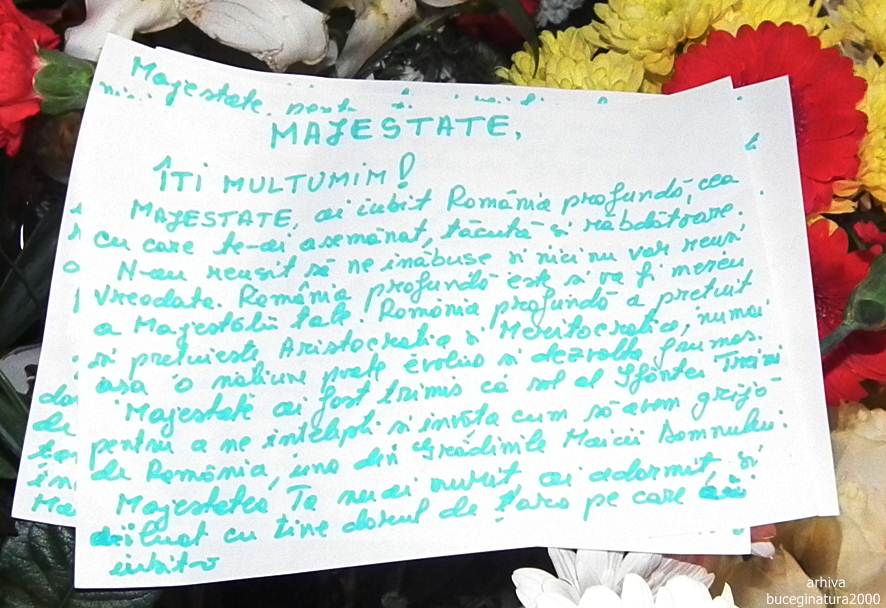 Majestate,
MAJESTATE,
ÎTI MULTUMIM!
MAJESTATE, ai iubit România profundă, cea
cu care te-ai asemănat, tăcută si răbdătoare.
N-au reusit să ne inăbuse si nici nu vor reusi
vreodate. România profundă este si va fi mereu
a Majestătii tale. România profundă a pretuit
si pretuieste Aristocratia si Meritocratia, numai
asa o natiune poate evolua si dezvolta frumos.
Majestate ai fost trimis ca sol al Sfintei Treimi
pentru a ne intelepti si invăta cum să avem grijă
de România, una din Grădinile Maicii Domnului.
Majestatea Ta nu ai murit, ai adormit, si
ai luat cu tine dorul de tara pe care ai
iubit-o
arhiva
buceginatura2000